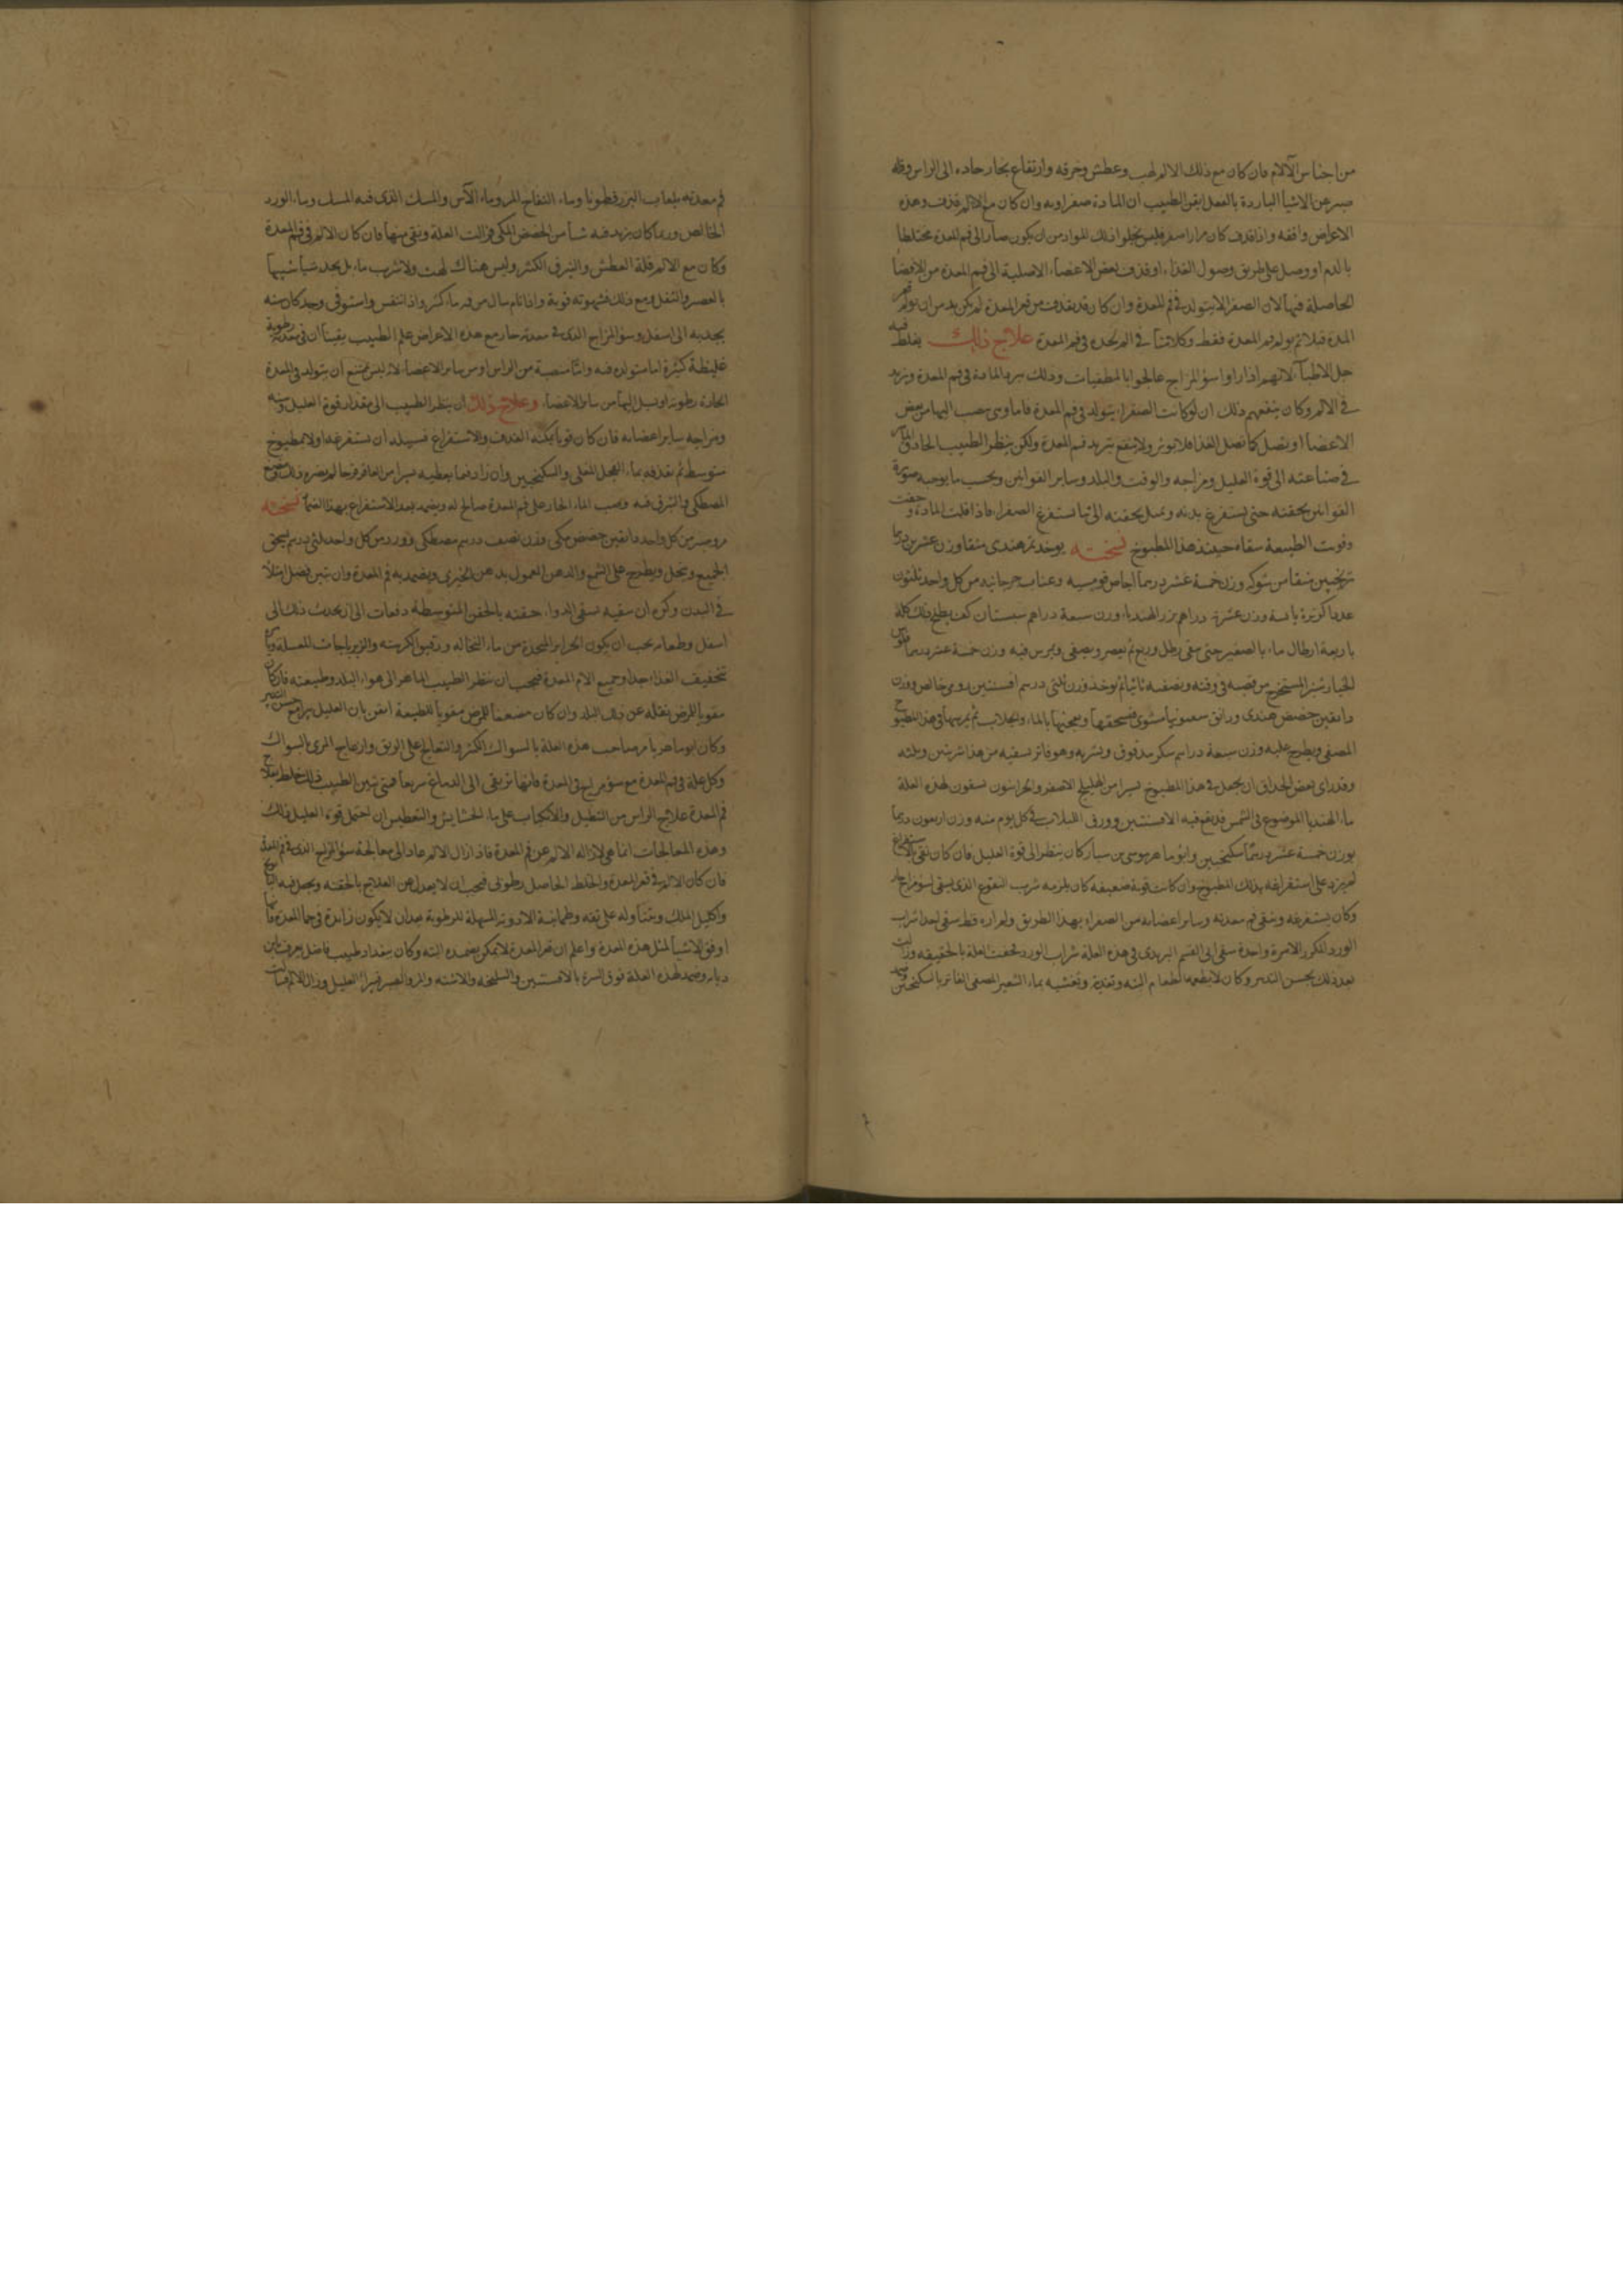 من اجناس الآلام فان كان مع ذلك الالم لهب وعطش وحرقه وارتفاع بخار حاد الى الراس وقله
صبر عن الاشيا الباردة بالفعل ايقن الطبيب ان المادة صفراويه وان كان مع الالم قذف وهذه
الاعراض واقفه واذا قذف كان مرارا اصفر فليس يخلوا ذلك المواد من ان يكون صار الى فم المعدة مختلطا
بالدم او وصل على طريق وصول الغذاء او قذف بعض الاعضاء الاصلية الى فم المعدة من
الحاصلة فيها لان الصفرا لا يتولد في فم المعدة وان كان قد يقذف من قعر المعدة لم يكن بد من ان يولم قعر
المعدة قبلا ثم يولم فم المعدة فقط وكلامنا في الم يحدث في فم المعدة علاج ذلك يغلط فيه
جل الاطبآ لانهم اذا راوا سؤ المزاج عالجوا بالمطفيات وذلك يبرد المادة في فم المعدة ويزيد
في الالم وكان ينفعهم ذلك ان لو كانت الصفرا يتولد في فم المعدة فاما وهي تنصب اليها من بعض
الاعضا او تصل كما تصل الغذا فلا يوثر ولا ينفع تبريد فم المعدة ولكن ينظر الطبيب الحاذق الماهر
في صناعته الى قوة العليل ومزاجه والوقت والبلد وساير القوانين وبحسب ما يوجبه صورة
القوانين يحقنه حتى يستفرغ بدنه ويميل بحقنه الى ما يستفرغ الصفرا فاذا قلت المادة وخفت
وقويت الطبيعة سقاه حينئذ هذا المطبوخ نسخته يوخذ تمر هندى منقا وزن عشرين درهما
ترنجبين منقا من شوكه وزن خمسة عشر درهما اجاص قومسيه وعناب جرجانيه من كل واحد ثلثون
عددا كزبرة يابسة وزن عشرة دراهم بزر الهندباء وزن سبعة دراهم سبستان كف يطبخ ذلك كله
باربعة ارطال ماء بالصغير حتى يبقى رطل وربع ثم يعصر ويصفى ويمرس فيه وزن خمسة عشر درهما فلوس
الخيارشنبر المستخرج من قصبه في وقته ويصفيه ثانيا ثم يوخذ وزن ثلثى درهم افسنتين رومى خالص ووزن
دانقين حضض هندى ودانق سقمونيا مشوى فيسحقها ويعجنها بالماء والجلاب ثم يمرسها في هذا المطبوخ
المصفى ويطرح عليه وزن سبعة دراهم سكر مدقوق ويشربه وهو فاتر يسقيه من هذا شربتين وثلثه
وقد راى بعض الحذاق ان يجعل في هذا المطبوخ يسيرا من الهليلج الاصفر والحرانيون يسقون لهذه العلة
ماء الهندبا الموضوع في الشمس قد نقع فيه الافسنتين وورق اللبلاب في كل يوم منه وزن اربعون درهما
بوزن خمسة عشر درهما سكنجبين وابو ماهر موسى بن سيار كان ينظر الى قوة العليل فان كان نقى
لم يزد على استفراغه بذلك المطبوخ وان كانت قوية ضعيفه كان يلزمه شرب النقوع الذى يسقى لسؤ مزاج حار
وكان يستفرغه وينقى فم معدته وساير اعضايه من الصفراء بهذا الطريق ولم اره قط سقى احدا شراب
الورد المكرر الا مرة واحدة سقى ابى القسم البريدى في هذه العلة شراب الورد فخفت العلة بالحقيقه وزالت
بعد ذلك بحسن التدبير وكان لا يطعمه الطعام البته وتغديه وتعشيه بماء الشعير المصفى الفاتر بالسكنجبين
فم معدته بلعاب البزر قطونا وماء التفاح المز وماء الآس والمسك الذى فيه المسك وماء الورد
الخالص وربما كان يزيد فيه شيأ من الحضض المكى فزالت العلة ونقى منها فان كان الالم في فم المعدة
وكان مع الالم قلة العطش والبزق الكثير وليس هناك لهث ولا شرب ماء بل يجد شيا شبيها
بالعصر والثقل ومع ذلك فشهوته قوية واذا نام سال من فيه ماء كثير واذا تنفس واستوفى وجد كان شيه
يجذبه الى اسفل وسؤ المزاج الذى في معدته حار مع هذه الاعراض علم الطبيب يقينا ان في معدته رطوبة
غليظة كثيرة اما متولده فيه واما منصبة من الراس او من ساير الاعضاء لانه ليس يمتنع ان يتولد في المعدة
الحارة رطوبه او يسيل اليها من ساير الاعضا وعلاج ذلك ان ينظر الطبيب الى مقدار قوة العليل وسنه
ومزاجه وساير اعضايه فان كان قويا يمكنه القذف والاستفراغ فسبيله ان يستفرغه اولا بمطبوخ
متوسط ثم يقذفه بماء الفجل المغلى والسكنجبين وان زاد فيما يعطيه يسيرا من العاقرقرحا لم يضره وذلك
المصطكى والشرق فيه وصب الماء الحار على فم المعدة صالح له ويضمد بعد الاستفراغ بهذا الضماد نسخته
مر وصبر من كل واحد دانقين حضض مكى وزن نصف درهم مصطكى وورد من كل واحد ثلثى درهم يسحق
الجميع وينخل ويطرح على الشمع والدهن المعمول بدهن الخيرى ويضمد به فم المعدة وان تبين فضل امتلا
في البدن وكره ان سقيه يسقى الدواء حقنه بالحقن المتوسطة دفعات الى ان يحدث ذلك الى
اسفل وطعامه يجب ان يكون الحراير المتخذة من ماء النخاله ودقيق الكرسنه والزيرباجات المعسلة
تخفيف الغذا جدا وجميع الام المعدة فيجب ان ينظر الطبيب الماهر الى هواء البلد وطبيعته فان كان
مقويا للمرض ينقله عن ذلك البلد وان كان مضعفا للمرض مقويا للطبيعة ايقن بان العليل يبرا مع حسن التدبير
وكان ابو ماهر يامر صاحب هذه العلة بالسواك الكثير والتعالج على الريق وازعاج المرى بالسواك
وكل علة في فم المعدة مع سؤ مزاج في المعدة فانها ترتقى الى الدماغ سريعا فمتى تبين الطبيب ذلك خلط بعلاج
فم المعدة علاج الراس من التنطيل والانكباب على ماء الحشايش والتعطيس ان احتمل قوة العليل ذلك
وهذه المعالجات انما هى لازاله الالم عن فم المعدة فاذا زال الالم عاد الى معالجة سؤ المزاج الذى في فم المعدة
فان كان الالم في قعر المعدة والخلط الحاصل رطوبى فيجب ان لا يعدل عن العلاج بالحقنه ويجعل فيه
واكليل الملك ويتناوله على ثقه وطمانينة الادويه المسهلة للرطوبة بعد ان لا يكون زايدة في حمى المعدة
اوفق الاشيا لمثل هذه المعدة واعلم ان قعر المعدة لا يمكن تضمده البته وكان ببغداد طبيب فاضل يعرف بابن
ديار وضمد لهذه العلة فوق السرة بالافسنتين والسليخه والاشنه والمر والصبر فيبرا العليل وزال الالم